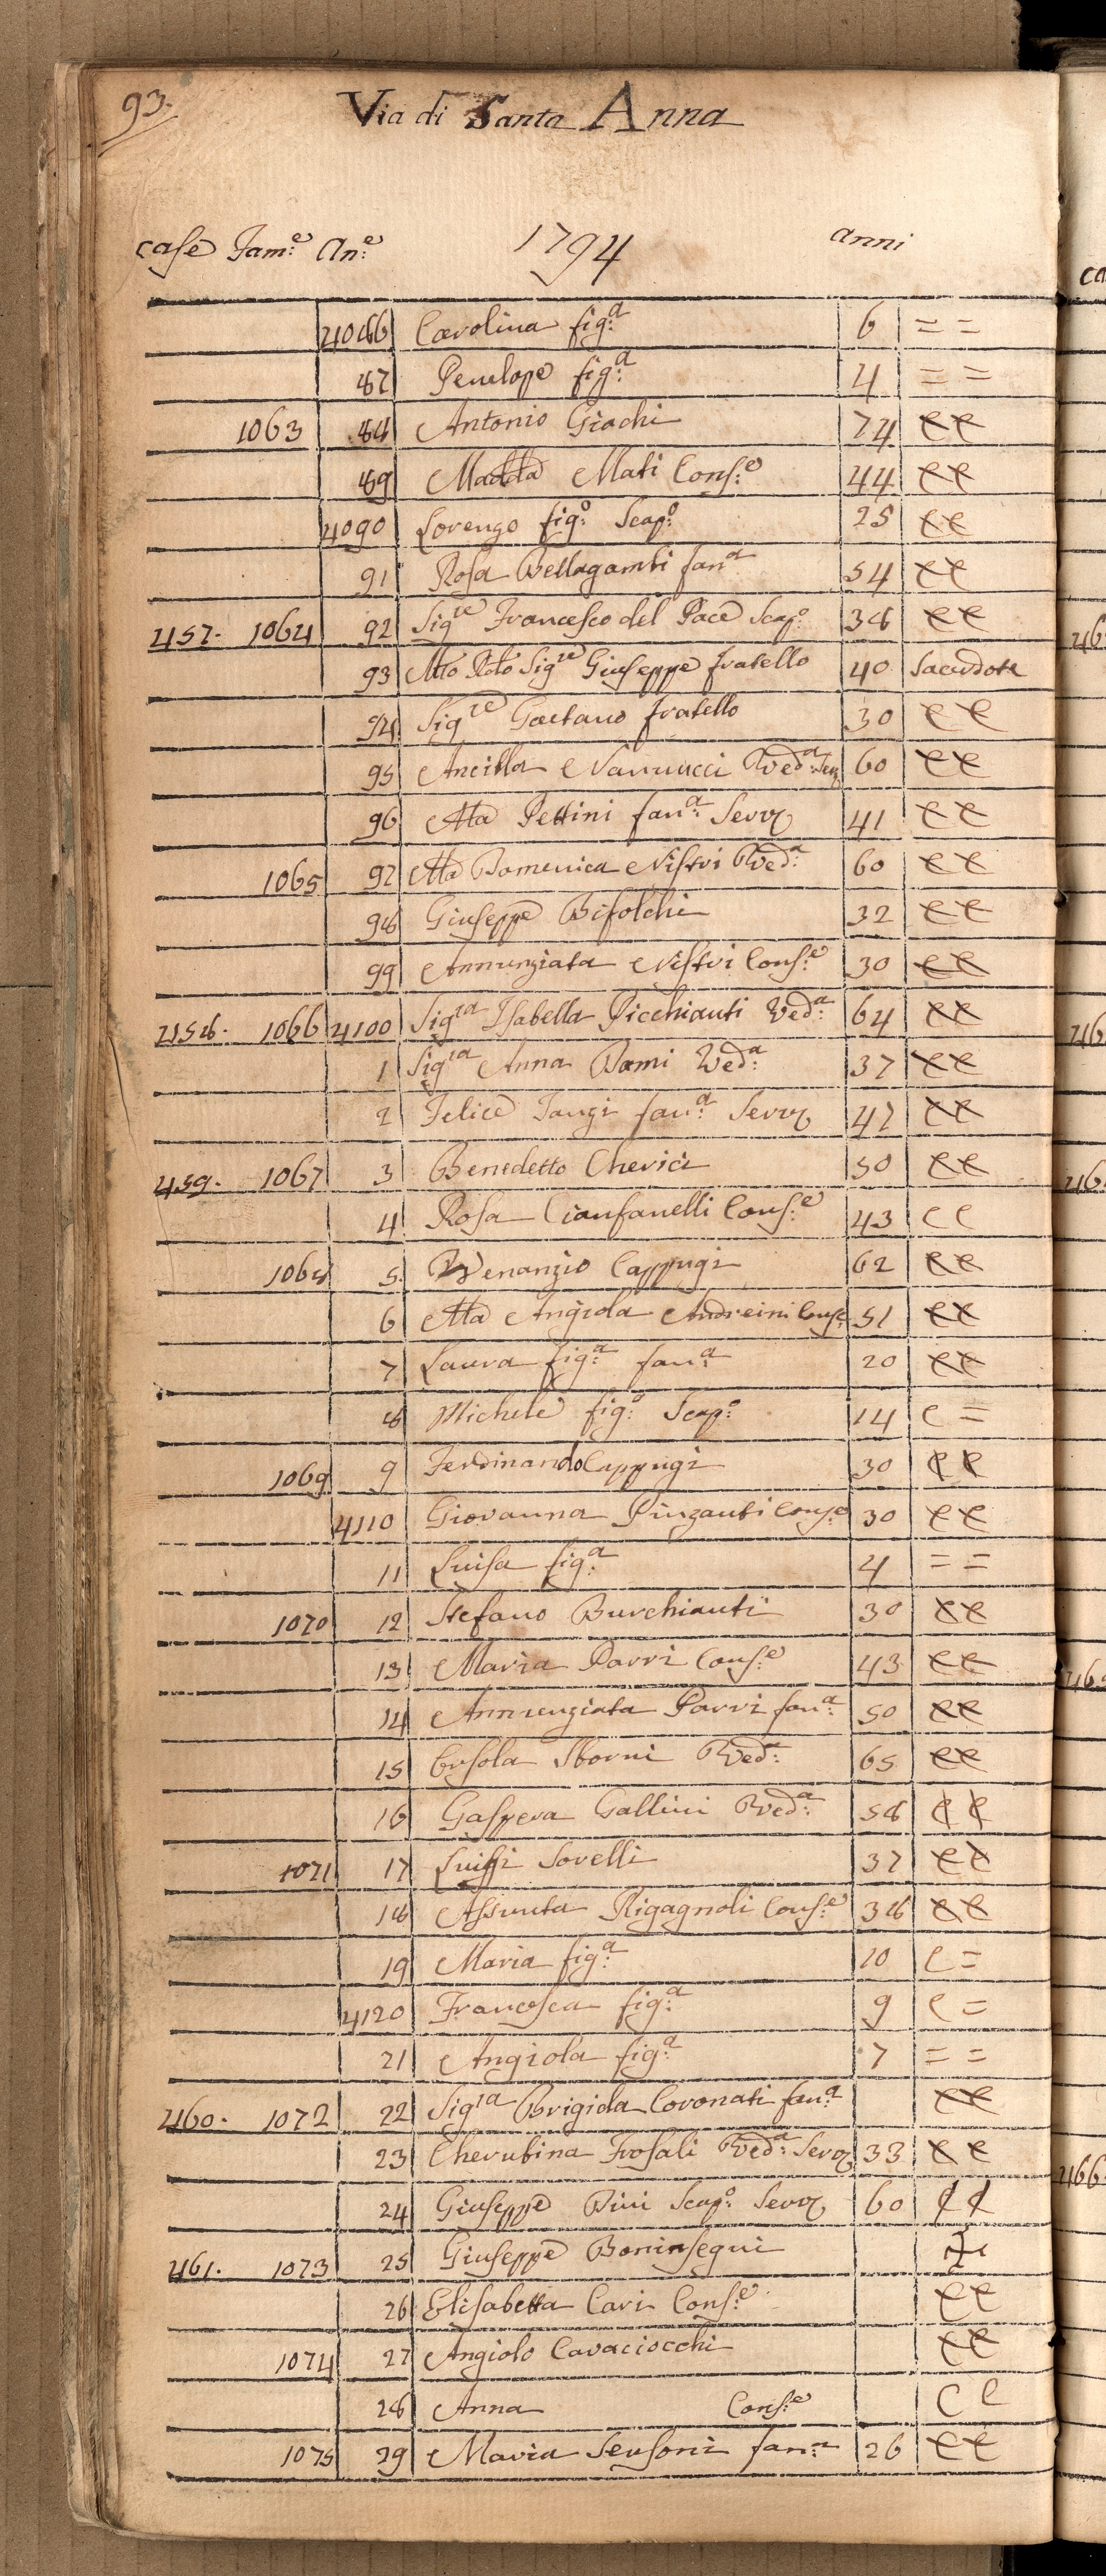 93.
Via di Santa Anna
case Fam:e An:e 1794 anni
4086 Carolina fig:a 6 = =
87 Penelope fig:a 4 = =
1063 88 Antonio Giachi 74 CC
89 Madda Mati Cons:e 44 CC
4090 Lorenzo fig:o Scap:o 25 CC
91 Rosa Bellagambi fan:a 54 CC
457. 1064 92 Sig:re Francesco del Pace Scap:o 38 CC
93 Mto Rdo Sig:re Giuseppe fratello 40 Sacerdote
94 Sig:re Gaetano fratello 30 CC
95 Ancilla Nannucci Ved:a Serv 60 CC
96 Ma Pettini fan:a Serv 41 CC
1065 97 Ma Domenica Nistri Ved:a 60 CC
98 Giuseppe Bifolchi 32 CC
99 Annunziata Nistri Cons:e 30 CC
458. 1066 4100 Sig:ra Isabella Picchianti Ved:a 64 CC
1 Sig:ra Anna Bami Ved:a 37 CC
2 Felice Tangi fan:a Serv 47 CC
459. 1067 3 Benedetto Cherici 50 CC
4 Rosa Cianfanelli Cons:e 43 CC
1068 5 Venanzio Cappugi 62 CC
6 Ma Angiola Andreini Cons:e 51 CC
7 Laura fig:a fan:a 20 CC
8 Michele fig:o Scap:o 14 C =
1069 9 Ferdinando Cappugi 30 CC
4110 Giovanna Pinzauti Cons:e 30 CC
11 Luisa fig:a 4 = =
1070 12 Stefano Burchianti 30 CC
13 Maria Parri Cons:e 43 CC
14 Annunziata Parri fan:a 50 CC
15 Orsola Storni Ved:a 65 CC
16 Gaspera Gallini Ved:a 58 CC
1071 17 Luigi Sorelli 37 CC
18 Assunta Rigagnoli Cons:e 38 CC
19 Maria fig:a 10 C =
4120 Francesca fig:a 9 C =
21 Angiola fig:a 7 = =
460. 1072 22 Sig:ra Brigida Coronati fan:a CC
23 Cherubina Frosali Ved:a Serv 33 CC
24 Giuseppe Bini Scap:o Serv 60 CC
461. 1073 25 Giuseppe Boninsegni
26 Elisabetta Cari Cons:e CC
1074 27 Angiolo Cavaciocchi CC
28 Anna Cons:e C C
1075 29 Maria Sensoni fan:a 26 CC